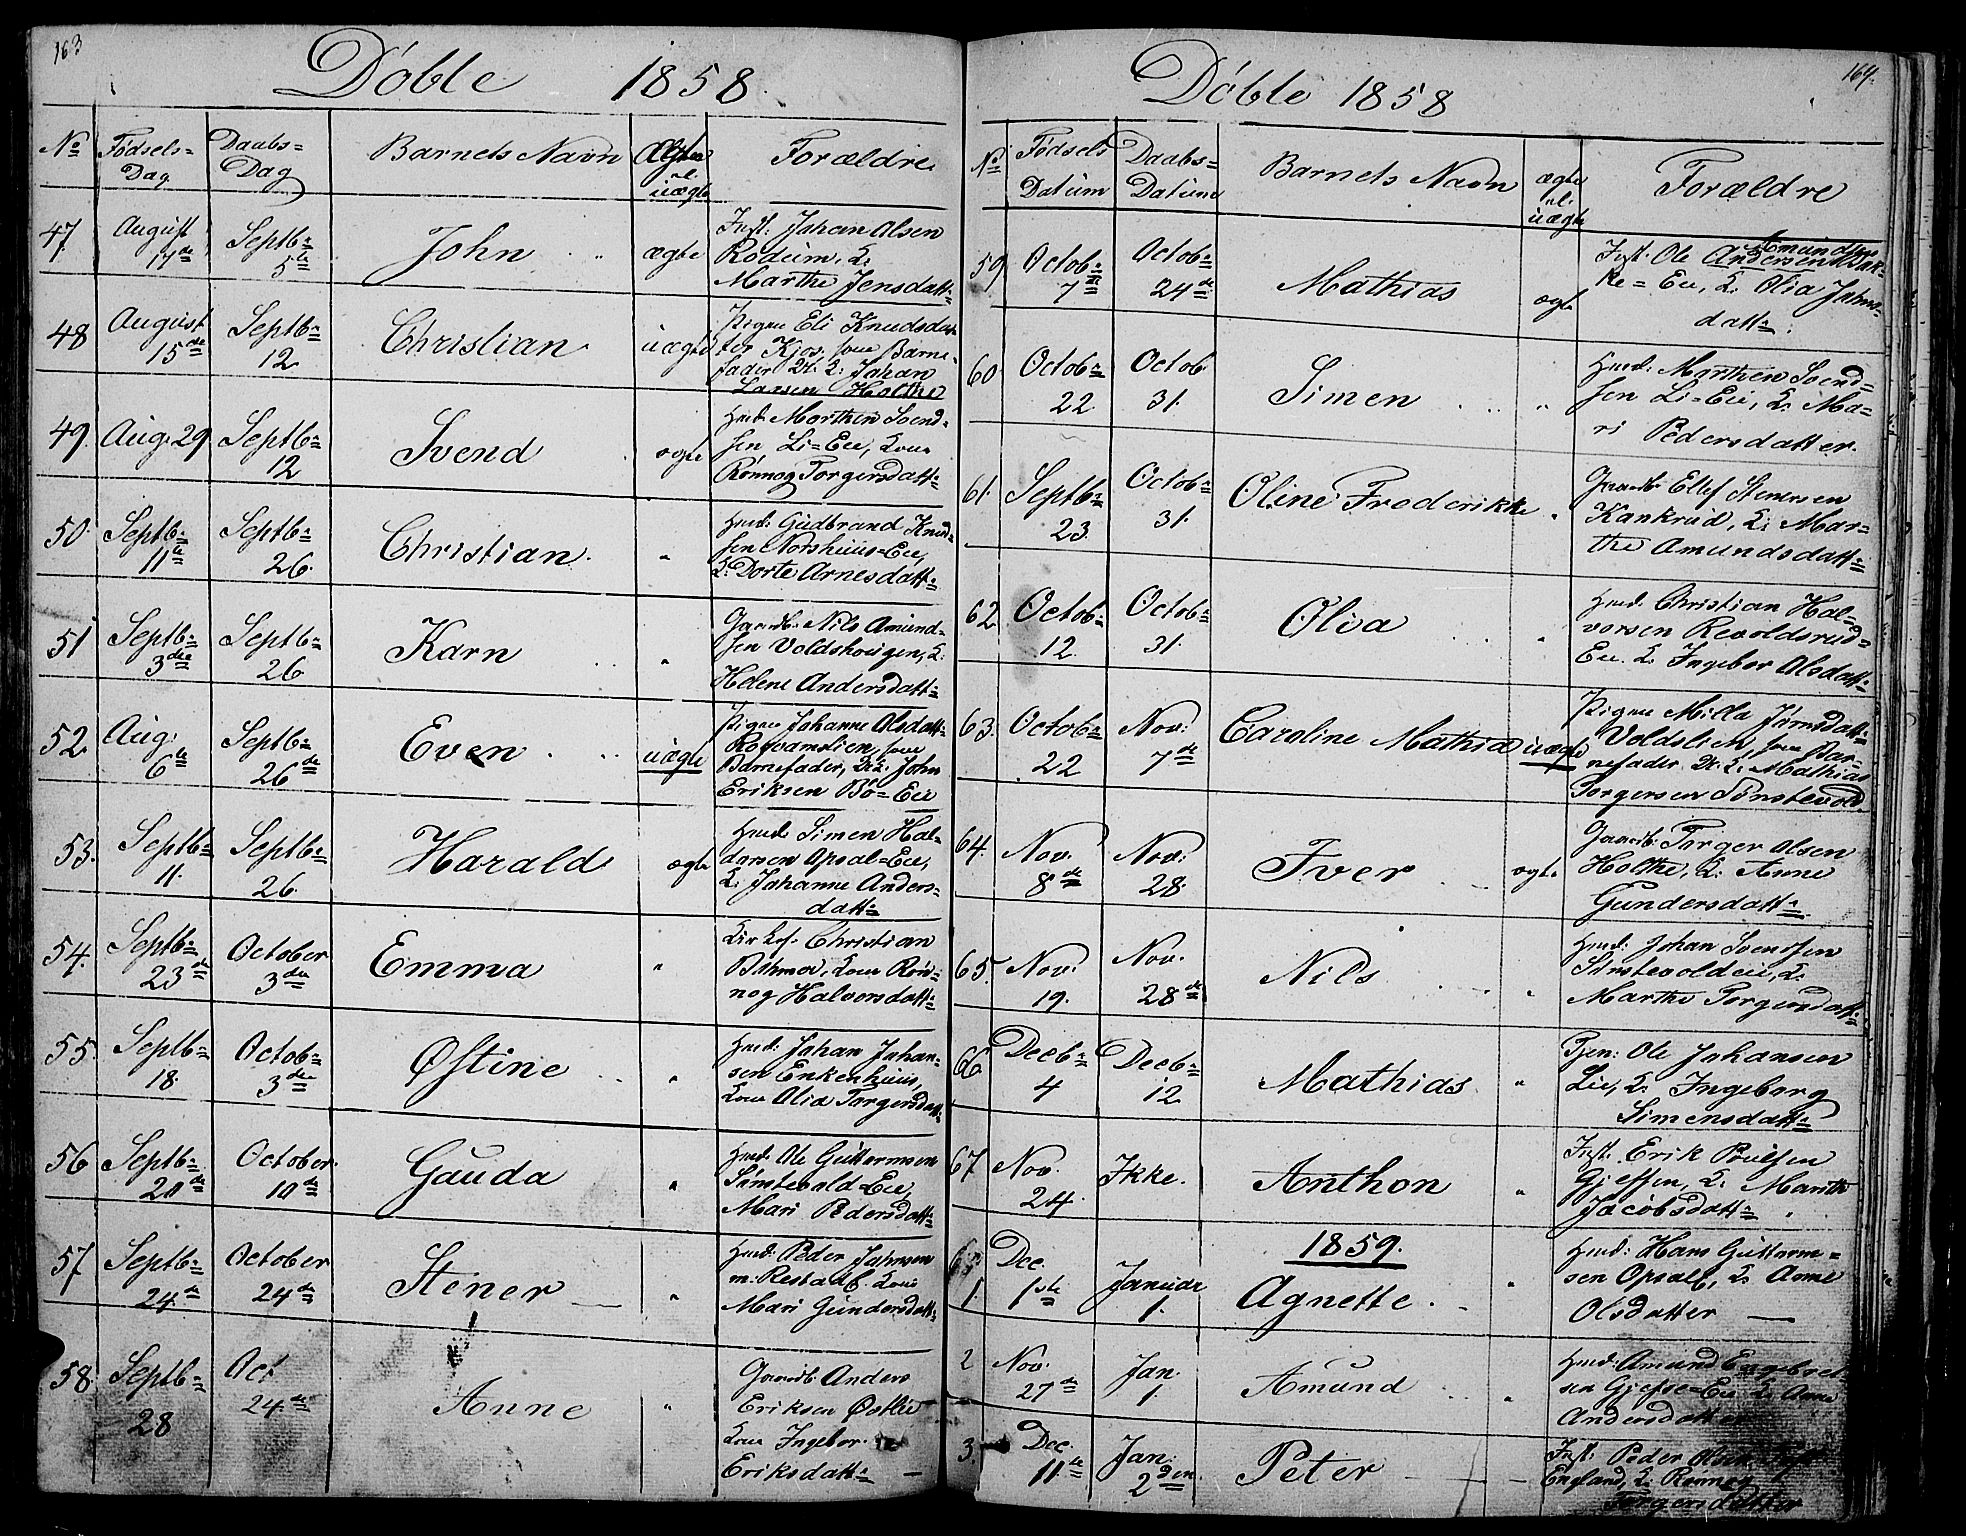 163
Døbte 1858.
No Fødsels= Dag Daabs= Dag Barnets Navn Ægte el. uægte Forældre
47. August 17de Septb: 5te John ægte Inst: Johan Olsen
Rodeim, K:
Marthe Jensdatt:
48 August 15de Septb: 12 Christian uægte Pigen Eli Knudsdat
ter Kjos, som Barne=
fader Johan
Larsen Holthe
49. Aug. 29 Septb: 12 Svend ægte Huusm: Morthen Svend=
sen Li=Eie, Kone
Rønnog Torgersdatt:
50. Septb: 11te Septb: 26. Christian. " Huusm: Gudbrand Knud=
sen Norshuus=Eie,
K: Dorte Arnesdatt:
51 Septb: 3die Septb: 26 Karn " Gaardb: Nils Amund=
sen Voldshougen, K:
Helene Andersdatt:
52. Aug: 6te Septb: 26de Even uægte Pigen Johanne Olsdatt:
som
Barnefader, John
Eriksen Bø=Eie
53. Septb: 11. Septb: 26. Harald ægte Huusm: Simen Hal=
dorsen Opsal=Eie,
K: Johanne Anders=
datt:
54. Septb: 23de October 3die Emma " Christian
Kone Røn=
nog Halvorsdatt:
55. Septb: 18. Octob: 3die Østine " Huusm: Johan Johan=
sen Enkenhuus,
Kone Olia Torgersdatt:
56 Septb: 20de October 10de Gauda " Huusm: Ole Guttormsen
Sørstevold Eie,
Mari Pedersdatt:
57. Septb: 24de October 24de Stener " Huusm: Peder Johnsen
Kone
Mari Gundersdatt:
58. Septb: 28 Oct 24de Anne " Gaardb: Anders
Eriksen Østlie
Kone Ingebor
Eriksdatt:
164.
Døbte 1858
No. Fødsels Datum Daabs= Datum Barnets Navn ægte el. uægte Forældre
59 Octob: 7de Octob: 24de Mathias ægte Inst. Ole Amundsen Andersen Bak=
ke=Eie, K: Olia Johns=
datt:
60 Octob: 22 Octob 31. Simen " Huusm: Morthen Svend=
sen Li=Eie, K: Ma=
ri Pedersdatter.
61. Septb: 23. Octob: 31. Oline Frederikke " Gaardb: Ellef Stenersen
Kankrud, K: Mar=
the Amundsdatt:
62 Octob: 12. Octob: 31. Olia " Huusm: Christian Hal=
vorsen Revoldsrud=
Eie. K: Ingebor Olsdatt:
63. Octob: 22 Nov: 7de Caroline Mathia uægte Pigen Milla Jørnsdatt:
Voldslien, som Bar=
nefader Mathias
Torgersen Sørstevold
64. Nov. 8de Nov: 28. Iver ægte Gaardb: Torger Olsen
Holthe, K: Anne
Gundersdatt:
65. Nov: 19. Nov. 28de Nils " Huusm: Johan Svendsen
Sørstevoldeie, K:
Marthe Torgersdatt:
66 Decb: 4 Decb: 12 Mathias " Tjen: Ole Johansen
Lie, K: Ingeborg
Simensdatt:
67. Nov. 24. Ikke. Anthon " Inst: Erik Poulsen
Gjefsen, K: Marthe
Jacobsdatt:
1859.
1 Dec. 1ste Januar 1. Agnette. " Huusm: Hans Guttorm=
sen Opsal, K: Anne
Olsdatter
2 Nov. 27de Jan. 1. Amund " Huusm: Amund Engebret
sen Gjefse=Eie K: Anne
Andersdatter
3. Dec. 11te Jan: 2den Peter Inst: Peder Olsen
England, K: Rønnog
Torgersdatter